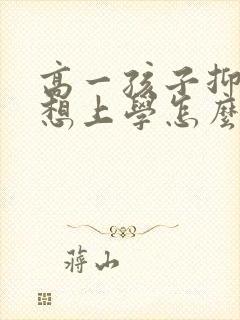 高一孩子抑
想上學怎麼
蔣山